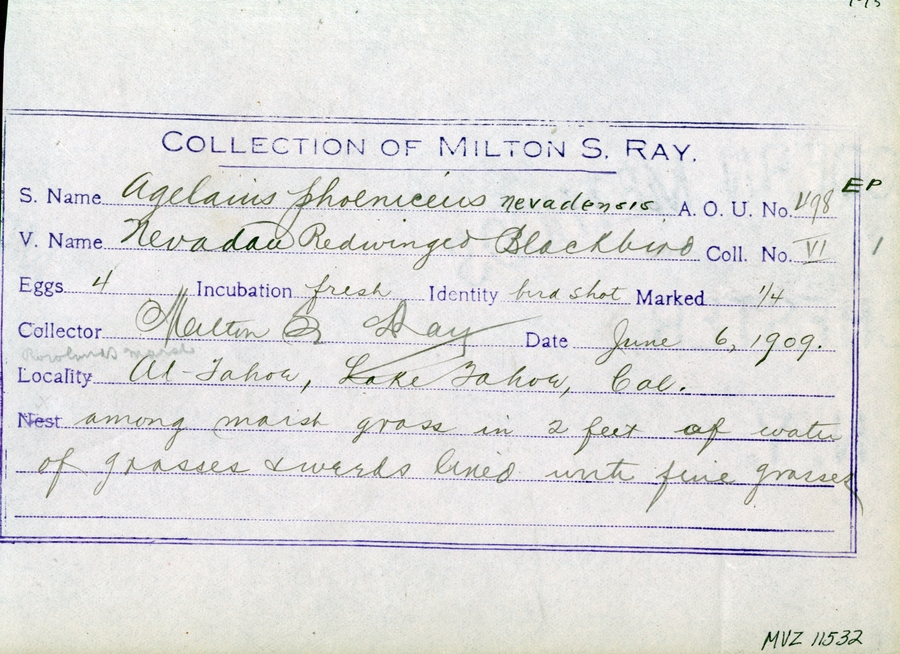 COLLECTION OF MILTON S. RAY.
S. Name Agelaius phoeniceus nevadensis A. O. U. No. 498 EP
V. Name Nevadan Redwinged Blackbird Coll. No. VI 1
Eggs 4 Incubation fresh Identity bird shot Marked 1/4
Collector Milton S Ray Date June 6, 1909.
Rowlands Marsh
Locality Al-Tahoe, Lake Tahoe, Cal.
Nest among marsh grass in 2 feet of water
of grasses & weeds lined with fine grasses
MVZ 11532